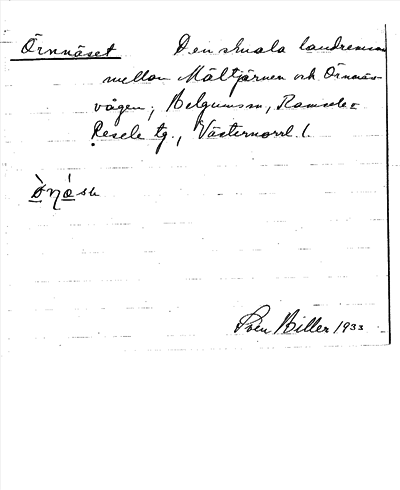 Örnnäset Den smala landremsan
mellan Mältjärnen och Örnnäs-
vågen; Helgumsm, Ramsele o
Resele tg., Västernorrl. l.
Sven Hiller 1933